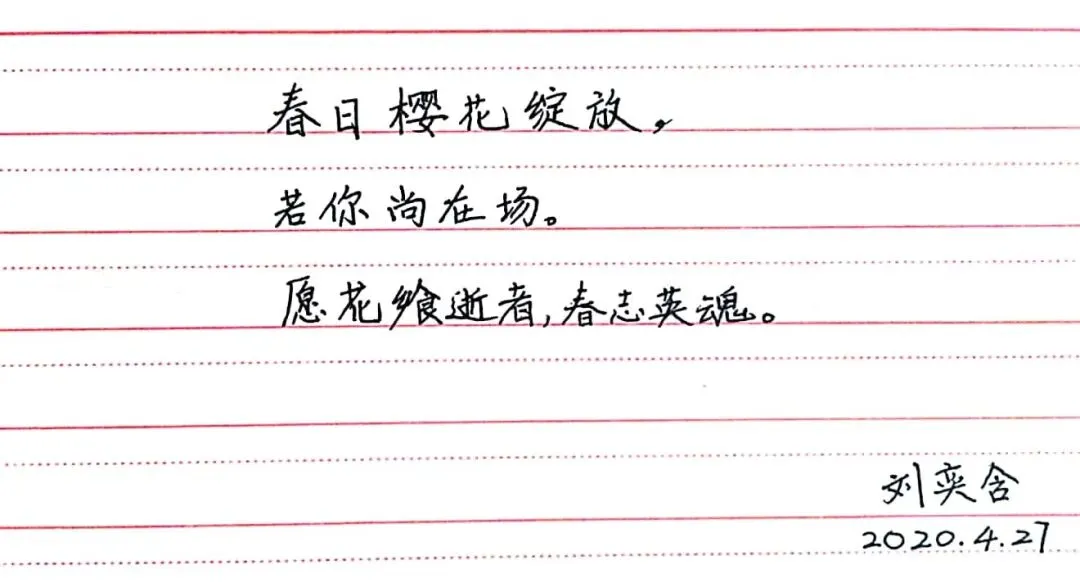 春日樱花绽放，
若你尚在场。
愿花飨逝者,春志英魂。
刘奕含
2020.4.27